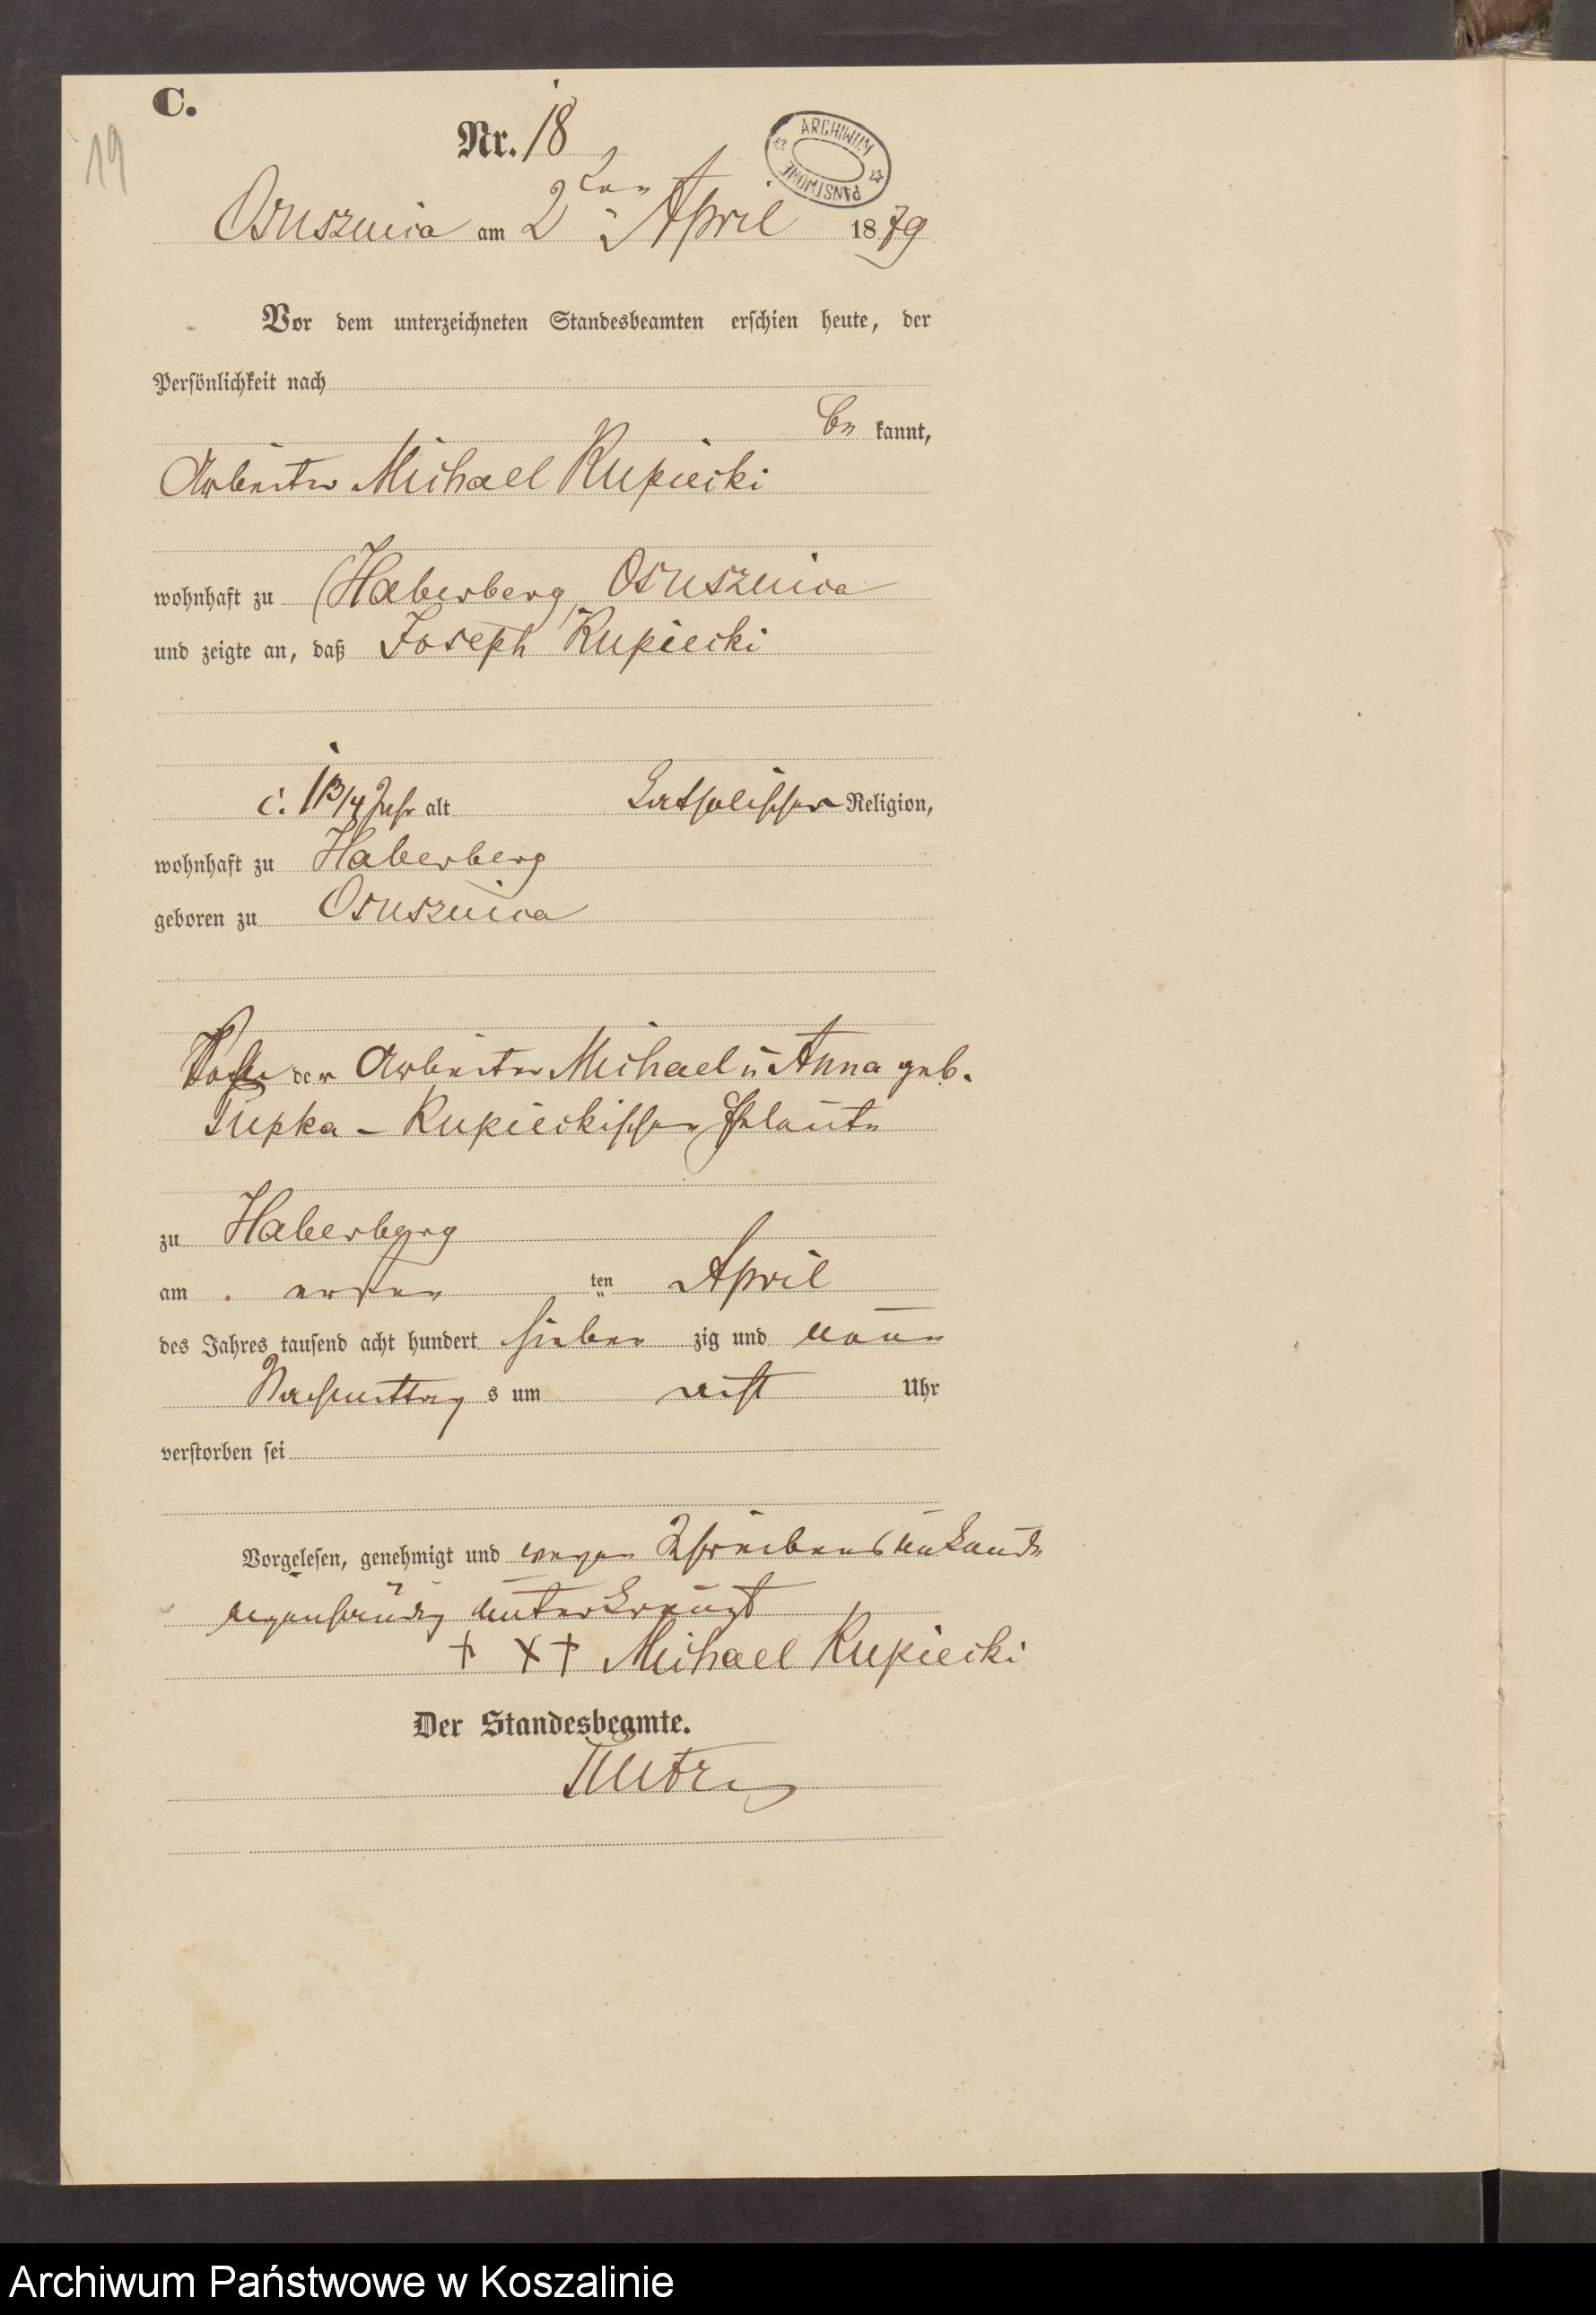 C.
19
Nr. 18
ARCHIWUM PAŃSTWOWE
Osusznica am 2ten April 1879
Vor dem unterzeichneten Standesbeamten erschien heute, der
Persönlichkeit nach
be kannt,
Arbeiter Michael Kupiecki
wohnhaft zu Haberberg, Osusznica
und zeigte an, daß Joseph Kupiecki
c. 1 3/4 Jahr alt katholischer Religion,
wohnhaft zu Haberberg
geboren zu Osusznica
der Arbeiter Michael u Anna geb.
Kupieckischen Eheleute
zu Haberberg
am ersten ten April
des Jahres tausend acht hundert sieben zig und neun
Nachmittag s um acht Uhr
verstorben sei
Vorgelesen, genehmigt und wegen Schreibensunkunde
eigenhändig unterkreuzt
+ X + Michael Kupiecki
Der Standesbeamte.
Archiwum Państwowe w Koszalinie